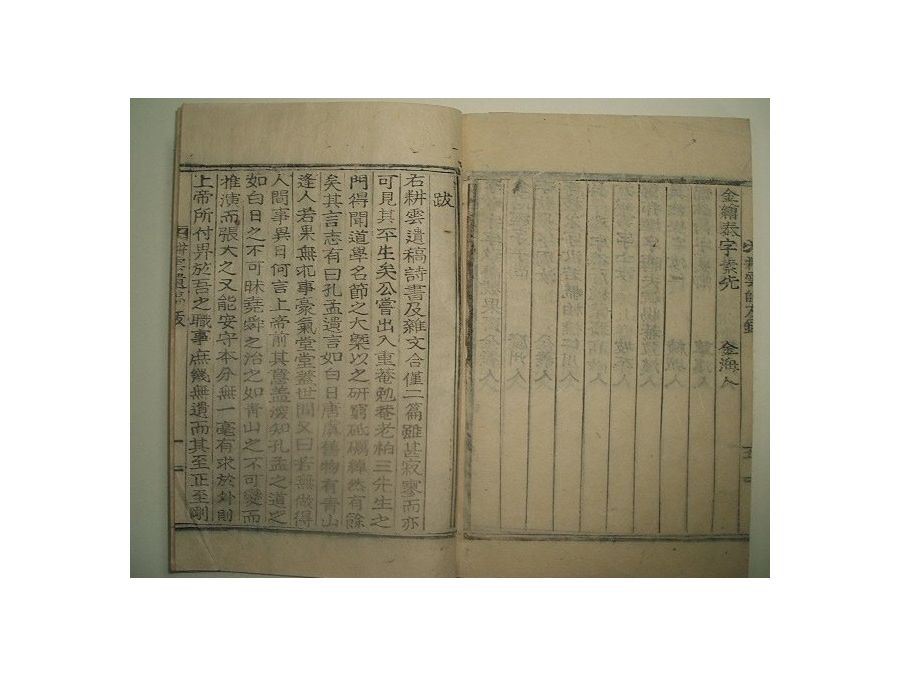 金繪泰字素先 金海人
跋
右耕雲遺稿詩書及雜文合僅二篇雖甚寂寥而亦
可見其平生矣公嘗出入重菴勉菴老柏三先生之
門得聞道學名節之大槩以之研窮砥礪綽然有餘
矣其言志有曰孔孟遺言如白日唐虞舊物有青山
逢人若果無邪事豪氣堂堂蓋世間又曰若無做得
人間事異日何言上帝前其意盖深知孔孟之道之
如白日之不可昧堯舜之治之如青山之不可變而
推演而張大之又能安守本分無一毫有求於外則
上帝所付畀於吾之職事庶幾無遺而其至正至剛
耕雲遺稿 跋